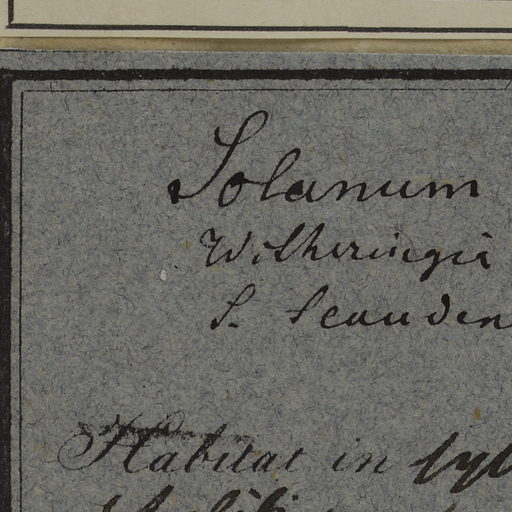 Solanum
Witheringii
S. scanden
Habitat in sylv